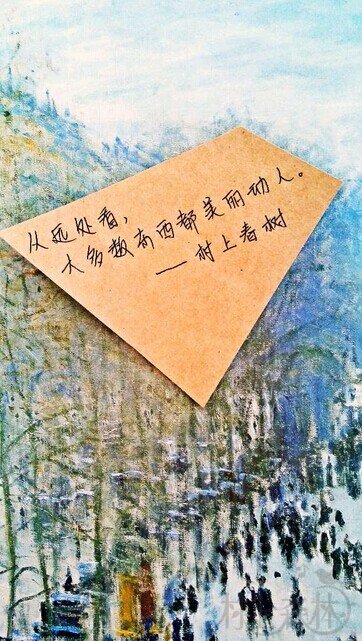 从远处看，
大多数东西都美丽动人。
——村上春树